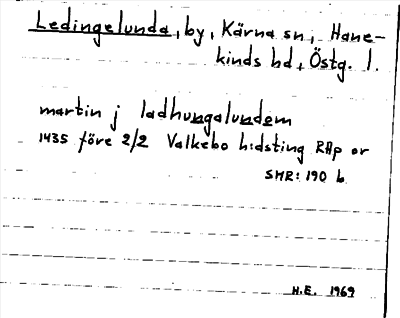 Ledingelunda, by, Kärna sn, Hane-
kinds hd, Östg. l.
martin j ladhungalundom
1435 före 2/2 Valkebo h:dsting RAp or
SMR: 190 b
H.E. 1969